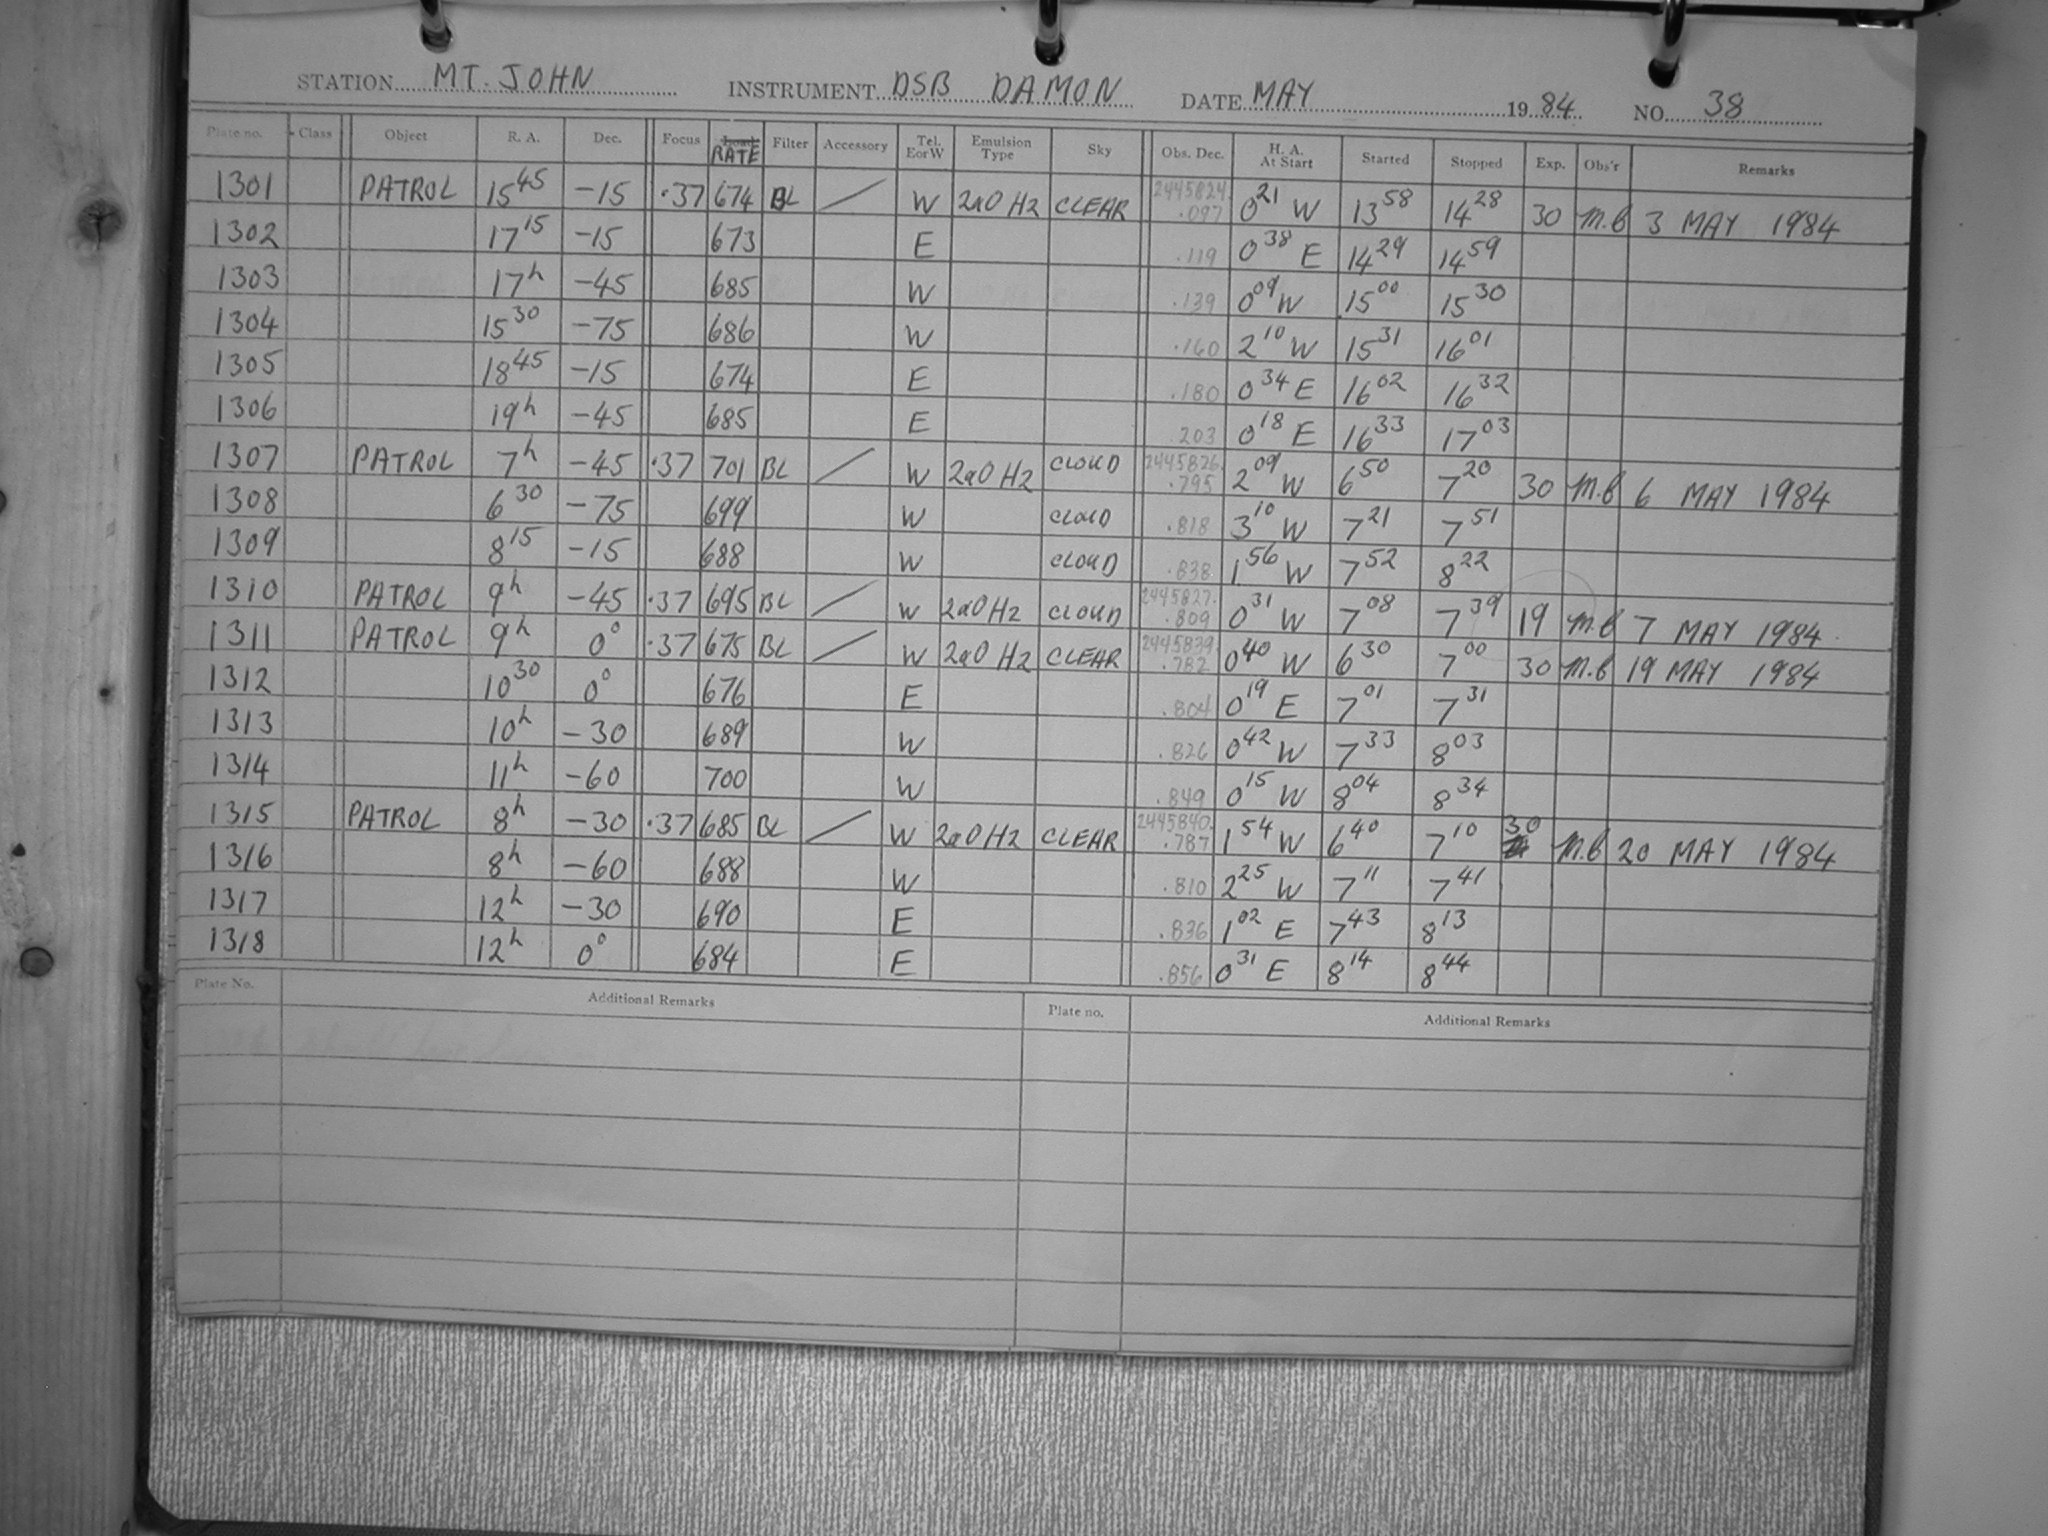 STATION MT. JOHN INSTRUMENT DSB DAMON DATE MAY 1984 NO. 38
Plate no. Class Object R. A. Dec. Focus RATE Filter Accessory Tel. E or W Emulsion Type Sky Obs. Dec. H. A. At Start Started Stopped Exp. Obs'r Remarks
1301 PATROL 15 45 -15 .37 674 BL / W 2aO H2 CLEAR 2445824 .097 0 21 W 13 58 14 28 30 M.B 3 MAY 1984
1302 17 15 -15 673 E .119 0 38 E 14 29 14 59
1303 17h -45 685 W .139 0 09 W 15 00 15 30
1304 15 30 -75 686 W .160 2 10 W 15 31 16 01
1305 18 45 -15 674 E .180 0 34 E 16 02 16 32
1306 19h -45 685 E .203 0 18 E 16 33 17 03
1307 PATROL 7h -45 .37 701 BL / W 2aO H2 CLOUD 2445826. .795 2 09 W 6 50 7 20 30 M.B 6 MAY 1984
1308 6 30 -75 699 W CLOUD .818 3 10 W 7 21 7 51
1309 8 15 -15 688 W CLOUD .838 1 56 W 7 52 8 22
1310 PATROL 9h -45 .37 695 BL / W 2aO H2 CLOUD 2445827. .809 0 31 W 7 08 7 39 19 M.B 7 MAY 1984.
1311 PATROL 9h 0° .37 675 BL / W 2aO H2 CLEAR 2445839. .782 0 40 W 6 30 7 00 30 M.B 19 MAY 1984
1312 10 30 0° 676 E .804 0 19 E 7 01 7 31
1313 10h -30 689 W .826 0 42 W 7 33 8 03
1314 11h -60 700 W .849 0 15 W 8 04 8 34
1315 PATROL 8h -30 .37 685 BL / W 2aO H2 CLEAR 2445840. .787 1 54 W 6 40 7 10 30 M.B 20 MAY 1984
1316 8h -60 688 W .810 2 25 W 7 11 7 41
1317 12h -30 690 E .836 1 02 E 7 43 8 13
1318 12h 0° 684 E .856 0 31 E 8 14 8 44
Plate No. Additional Remarks Plate no. Additional Remarks